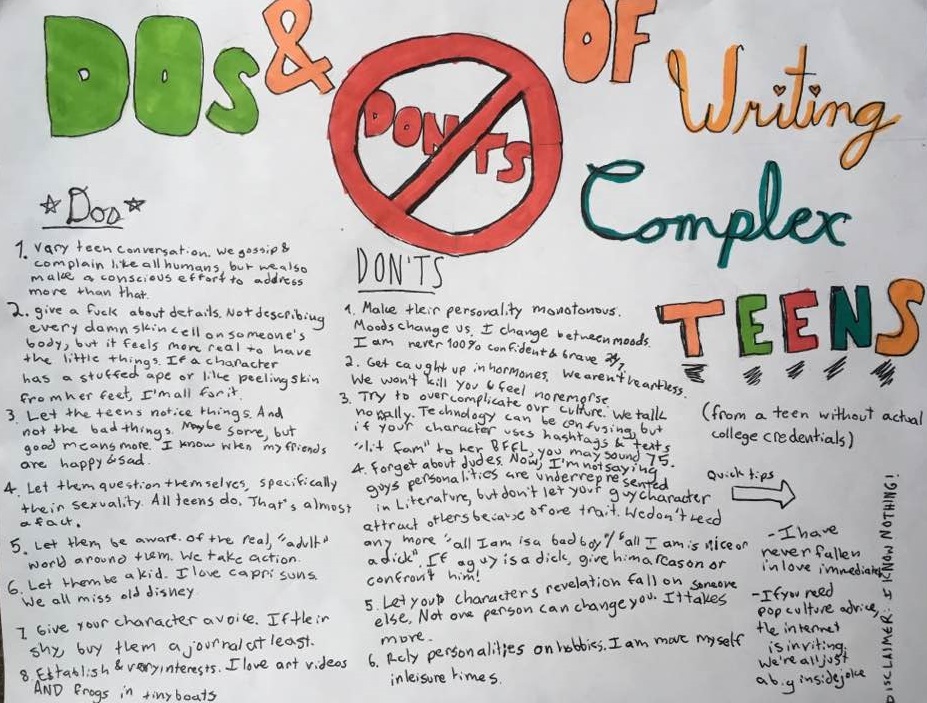 DOs & DON'TS OF Writing
Complex
TEENS
(from a teen without actual
college credentials)
*Dos*
1. Vary teen conversation. We gossip &
complain like all humans, but we also
make a conscious effort to address
more than that.
2. give a fuck about details. Not describing
every damn skin cell on someone's
body, but it feels more real to have
the little things. If a character
has a stuffed ape or like peeling skin
from her feet, I'm all for it.
3. Let the teens notice things. And
not the bad things. Maybe some, but
good means more. I know when my friends
are happy & sad.
4. Let them question themselves, specifically
their sexuality. All teens do. That's almost
a fact.
5. Let them be aware. Of the real, "adult"
world around them. We take action.
6. Let them be a kid. I love capri suns.
We all miss old disney.
7. Give your character a voice. If their
shy, buy them a journal at least.
8. Establish & vary interests. I love art videos
AND frogs in tiny boats
DON'TS
1. Make their personality monotonous.
Moods change us. I change between moods.
I am never 100% confident & brave 24/7
2. Get caught up in hormones. We aren't heartless.
We won't kill you & feel no remorse
3. Try to overcomplicate our culture. We talk
normally. Technology can be confusing, but
if your character uses hashtags & texts
"lit fam" to her BFFL, you may sound 75.
4. Forget about dudes. Now, I'm not saying
guys personalities are underrepresented
in Literature, but don't let your guy character
attract others because of one trait. We don't need
any more "all I am is a bad boy"/"all I am is nice or
a dick". If a guy is a dick, give him a reason or
confront him!
5. Let your characters revelation fall on someone
else. Not one person can change you. It takes
more.
6. Rely personalities on hobbies. I am more myself
in leisure times.
Quick tips
- I have
never fallen
in love immediately
- If you need
pop culture advice,
the internet
is inviting.
We're all just
a big inside joke
DISCLAIMER: I KNOW NOTHING!